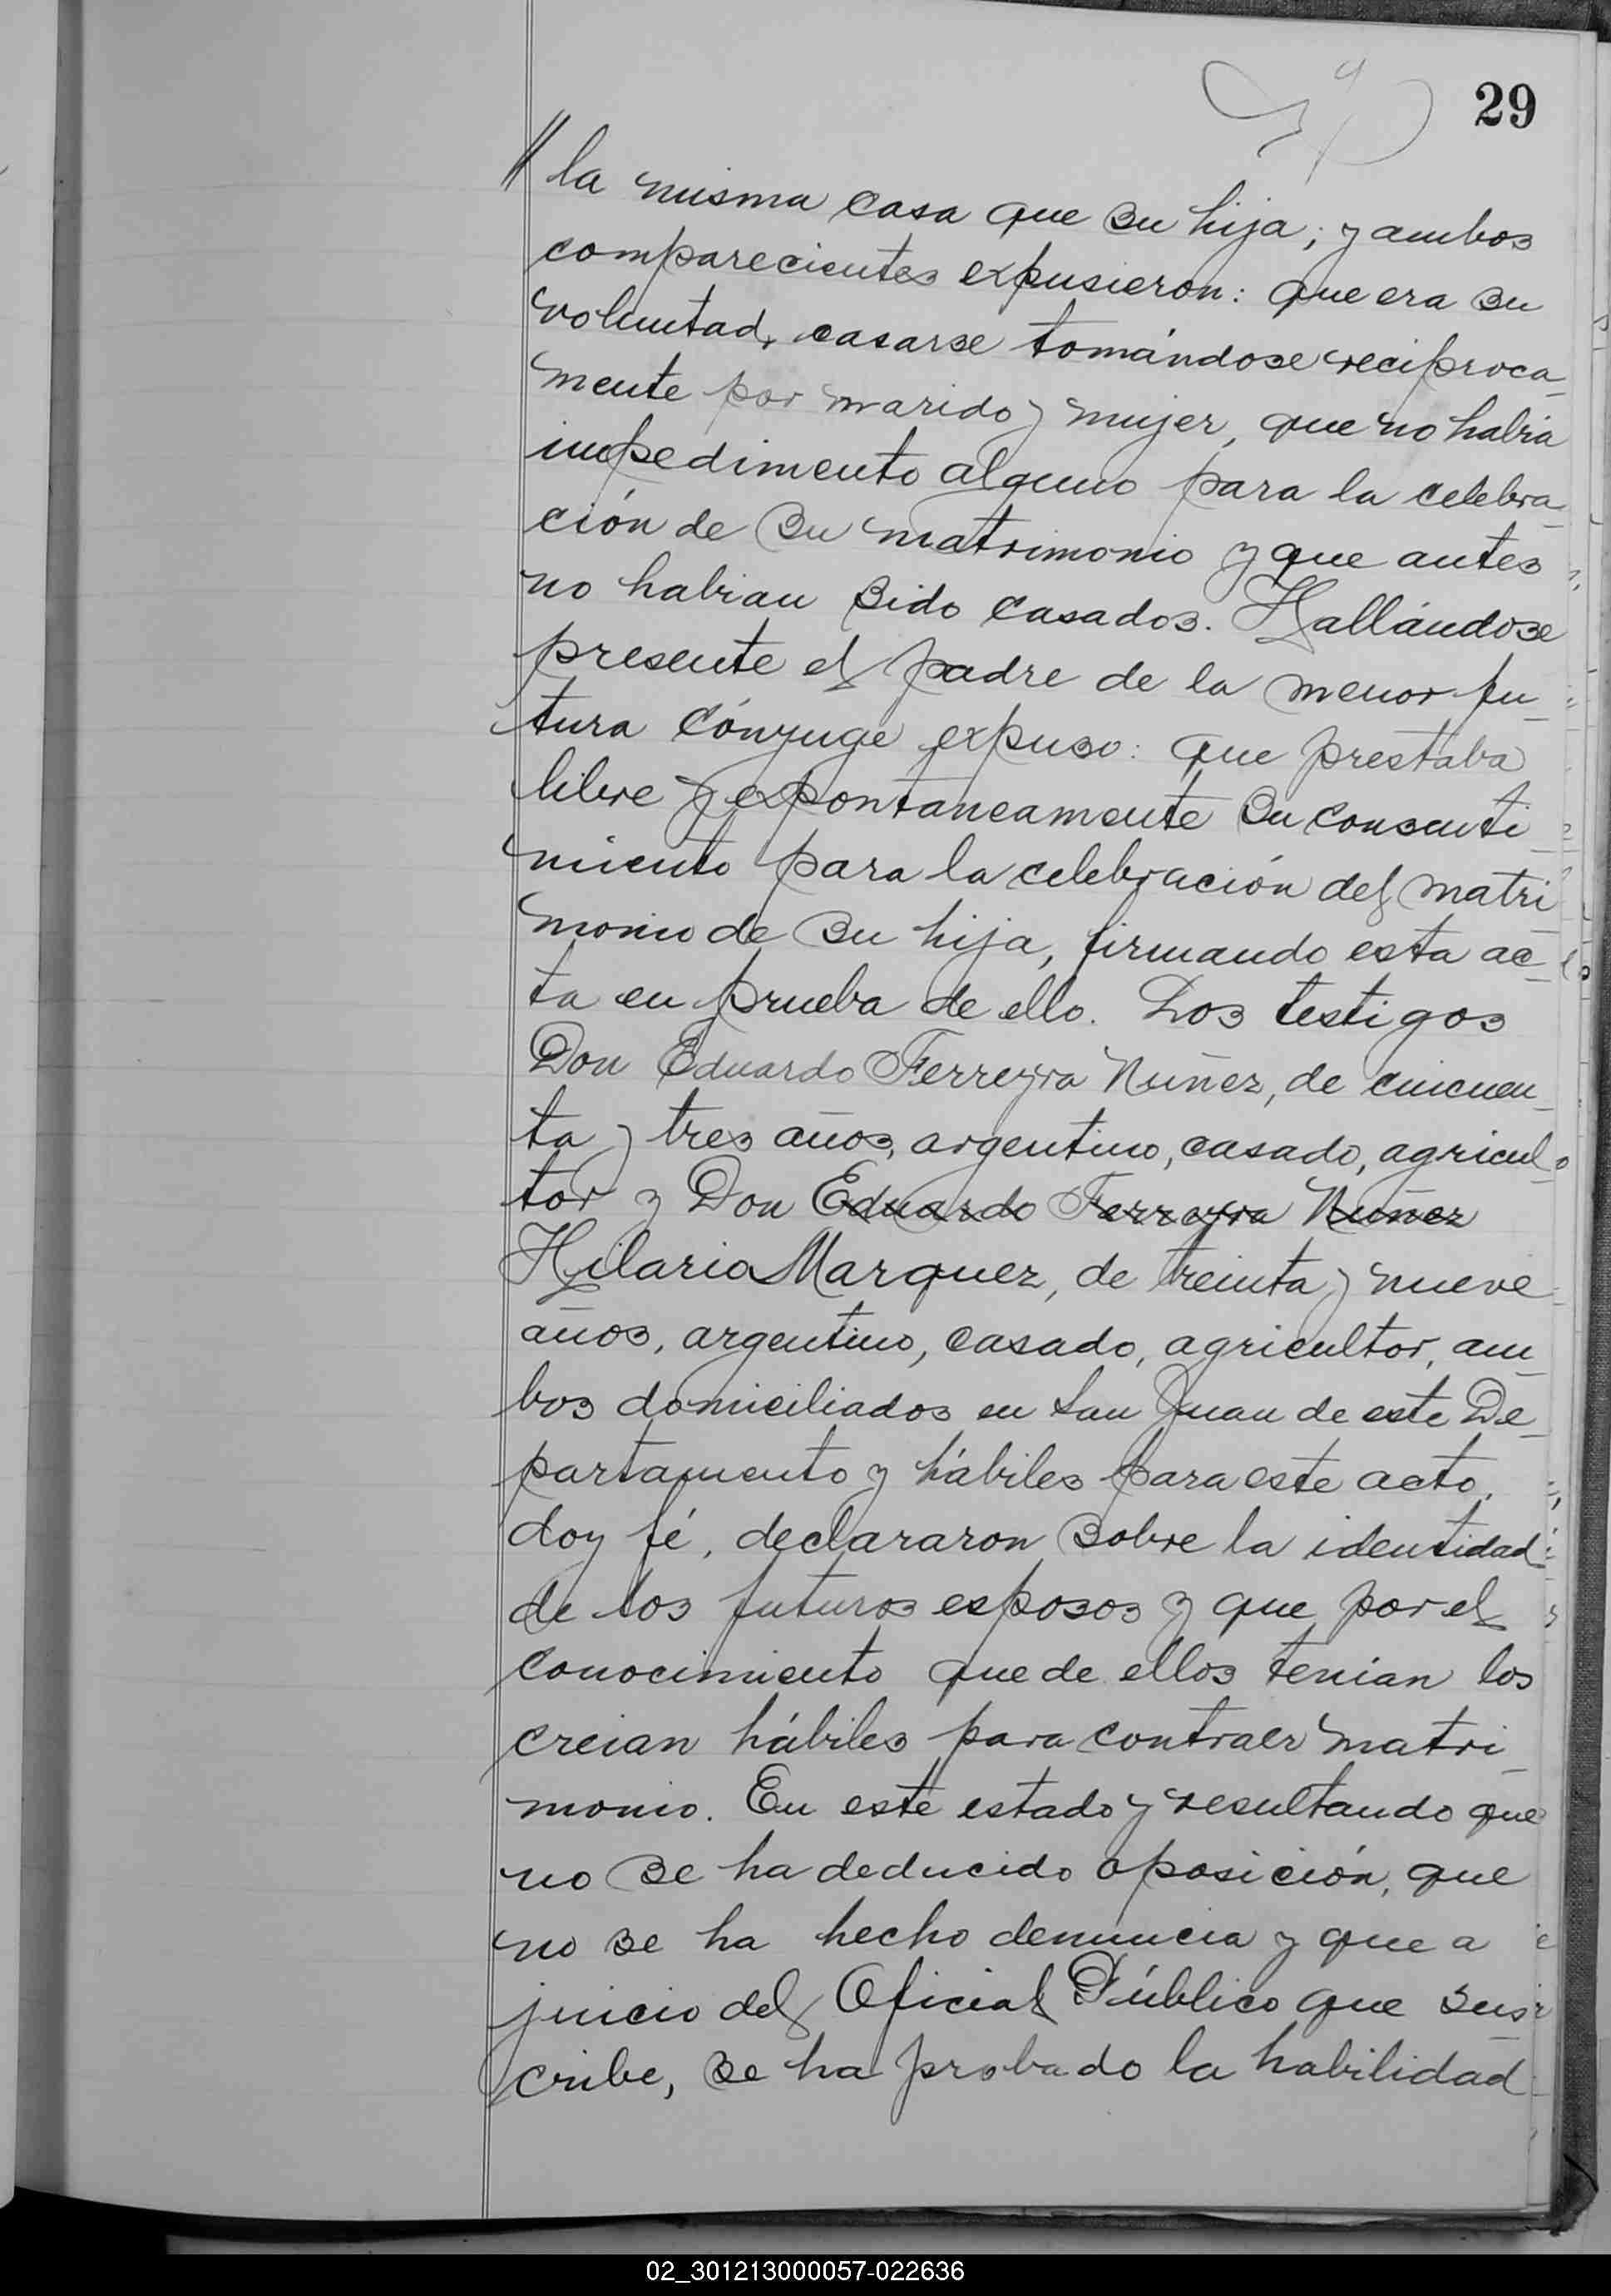 29
// la misma casa que su hija; y ambos
comparecientes expusieron: que era su
voluntad, casarse tomándose reciproca_
mente por marido y mujer, que no habia
impedimento alguno para la celebra_
ción de su matrimonio y que antes
no habian sido casados. Hallándose
presente el padre de la menor fu_
tura cónyuge expuso: que prestaba
libre y expontaneamente su consenti_
miento para la celebración del matri_
monio de su hija, firmando esta ac_
ta en prueba de ello. Los testigos
Don Eduardo Ferreyra Nuñez, de cincuen_
ta y tres años, argentino, casado, agricul_
tor y Don Eduardo Ferreyra Nuñez
Hilario Marquez, de treinta y nueve
años, argentino, casado, agricultor, am_
bos domiciliados en San Juan de este De_
partamento y hábiles para este acto,
doy fé, declararon sobre la identidad
de los futuros esposos y que por el
conocimiento que de ellos tenian los
creian hábiles para contraer matri_
monio. En este estado y resultando que
no se ha deducido oposición, que
no se ha hecho denuncia y que a
juicio del Oficial Público que sus_
cribe, se ha probado la habilidad
02_301213000057-022636